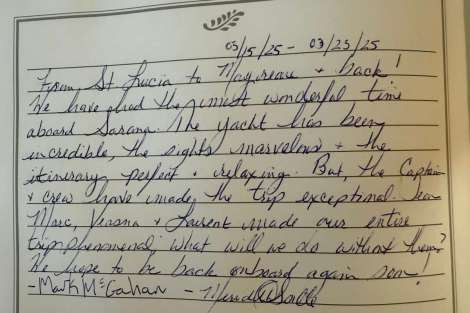 03/15/25 - 03/23/25
From St Lucia to Mayreau + back!
We have had the most wonderful time
aboard Sarang. The yacht has been
incredible, the sights marvelous + the
itinerary perfect + relaxing. But, the Captain
+ crew have made the trip exceptional.
Marc, + Laurent made our entire
trip phenomenal, what will we do without them?
We hope to be back onboard again soon!
- Mark McGahan -